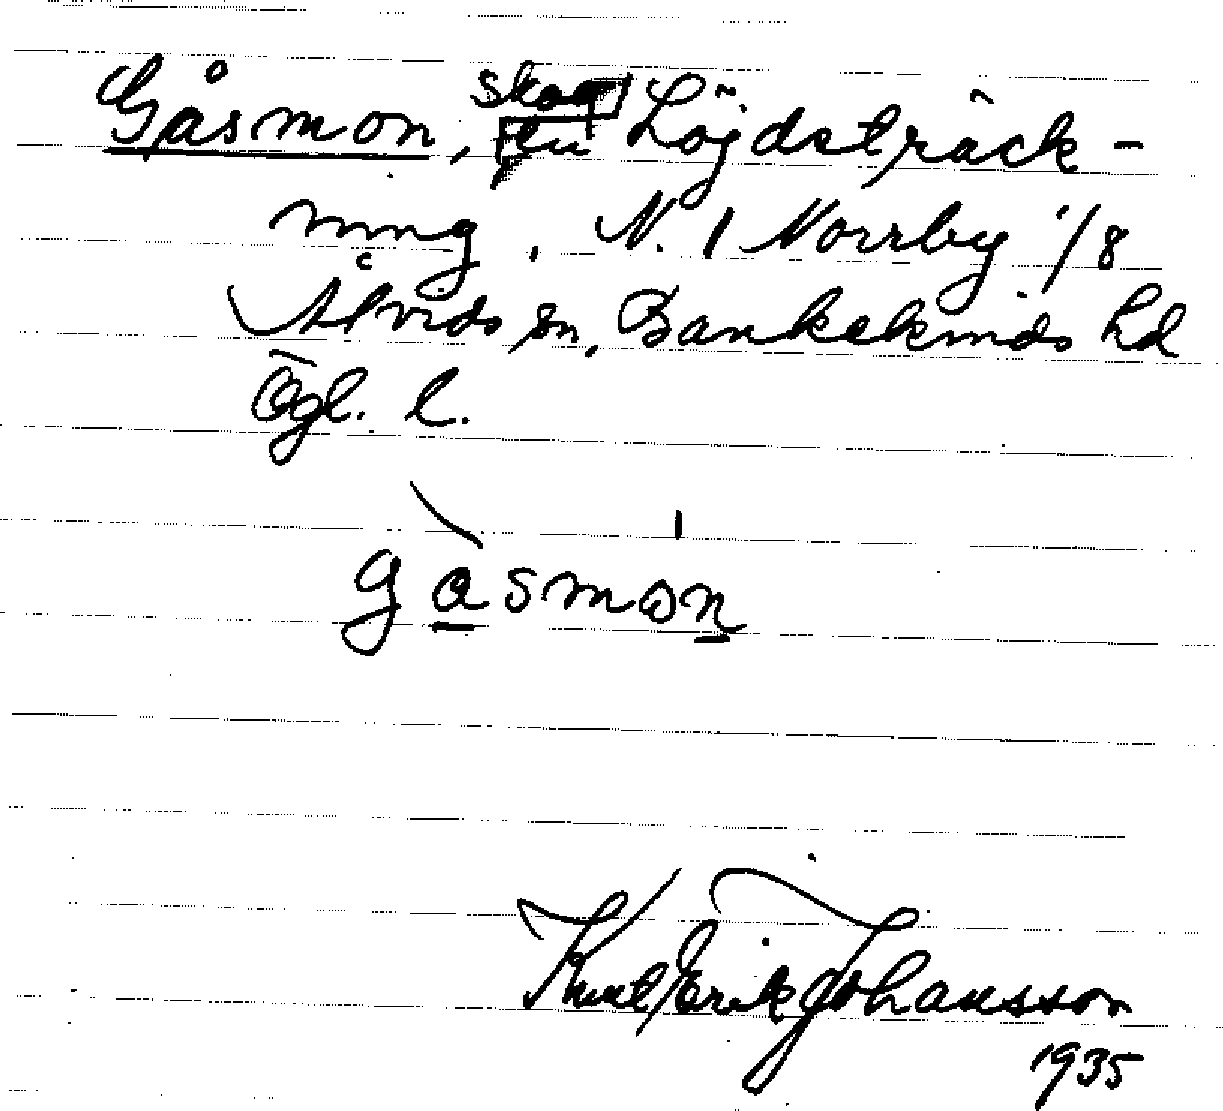 Gåsmon, skog
Höjdsträck-
ning. N. l Norrby 1/8
Åtvids sn, Bankekinds hd
Ögl. l.
gåsmòn
Knut Erik Johansson
1935